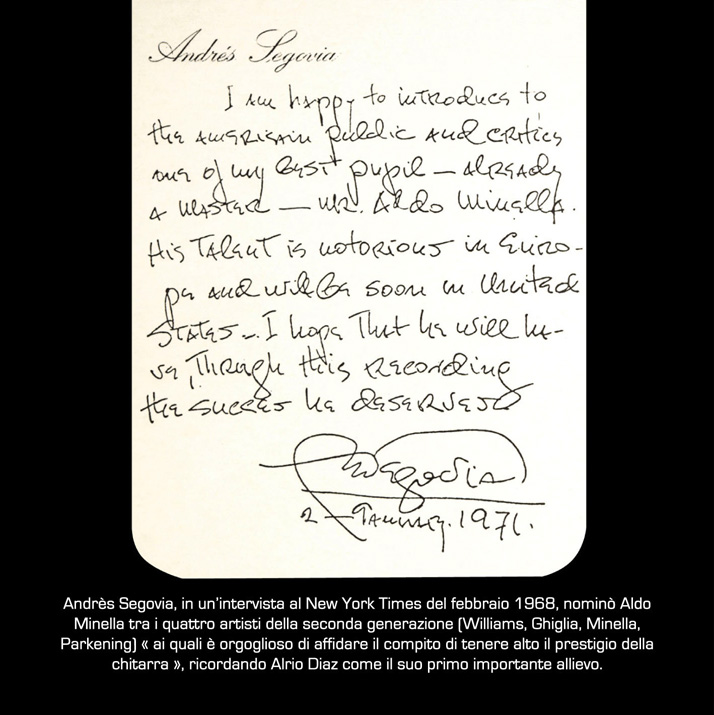 Andrés Segovia
I am happy to introduce to
the american public and critics
one of my best pupil – already
a master – Mr. Aldo Minella.
His talent is notorious in Euro-
pe and will be soon in United
States – I hope that he will ha-
ve through this recording
the succes he deserves
Segovia
2 – January. 1971.
Andrès Segovia, in un'intervista al New York Times del febbraio 1968, nominò Aldo
Minella tra i quattro artisti della seconda generazione (Williams, Ghiglia, Minella,
Parkening) « ai quali è orgoglioso di affidare il compito di tenere alto il prestigio della
chitarra », ricordando Alrio Diaz come il suo primo importante allievo.